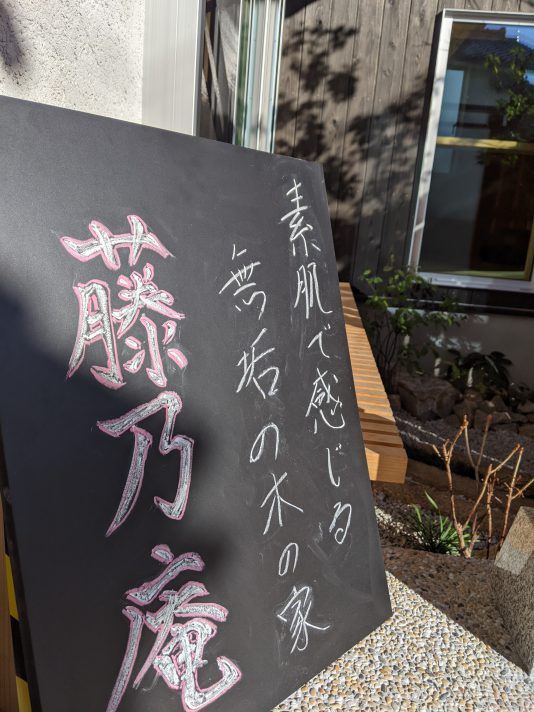 素肌で感じる
無垢の木の家
藤乃庵